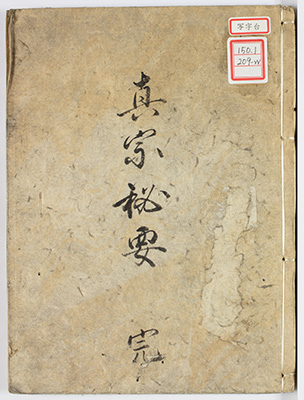 写字台
150.1
209-W
真宗秘要 完